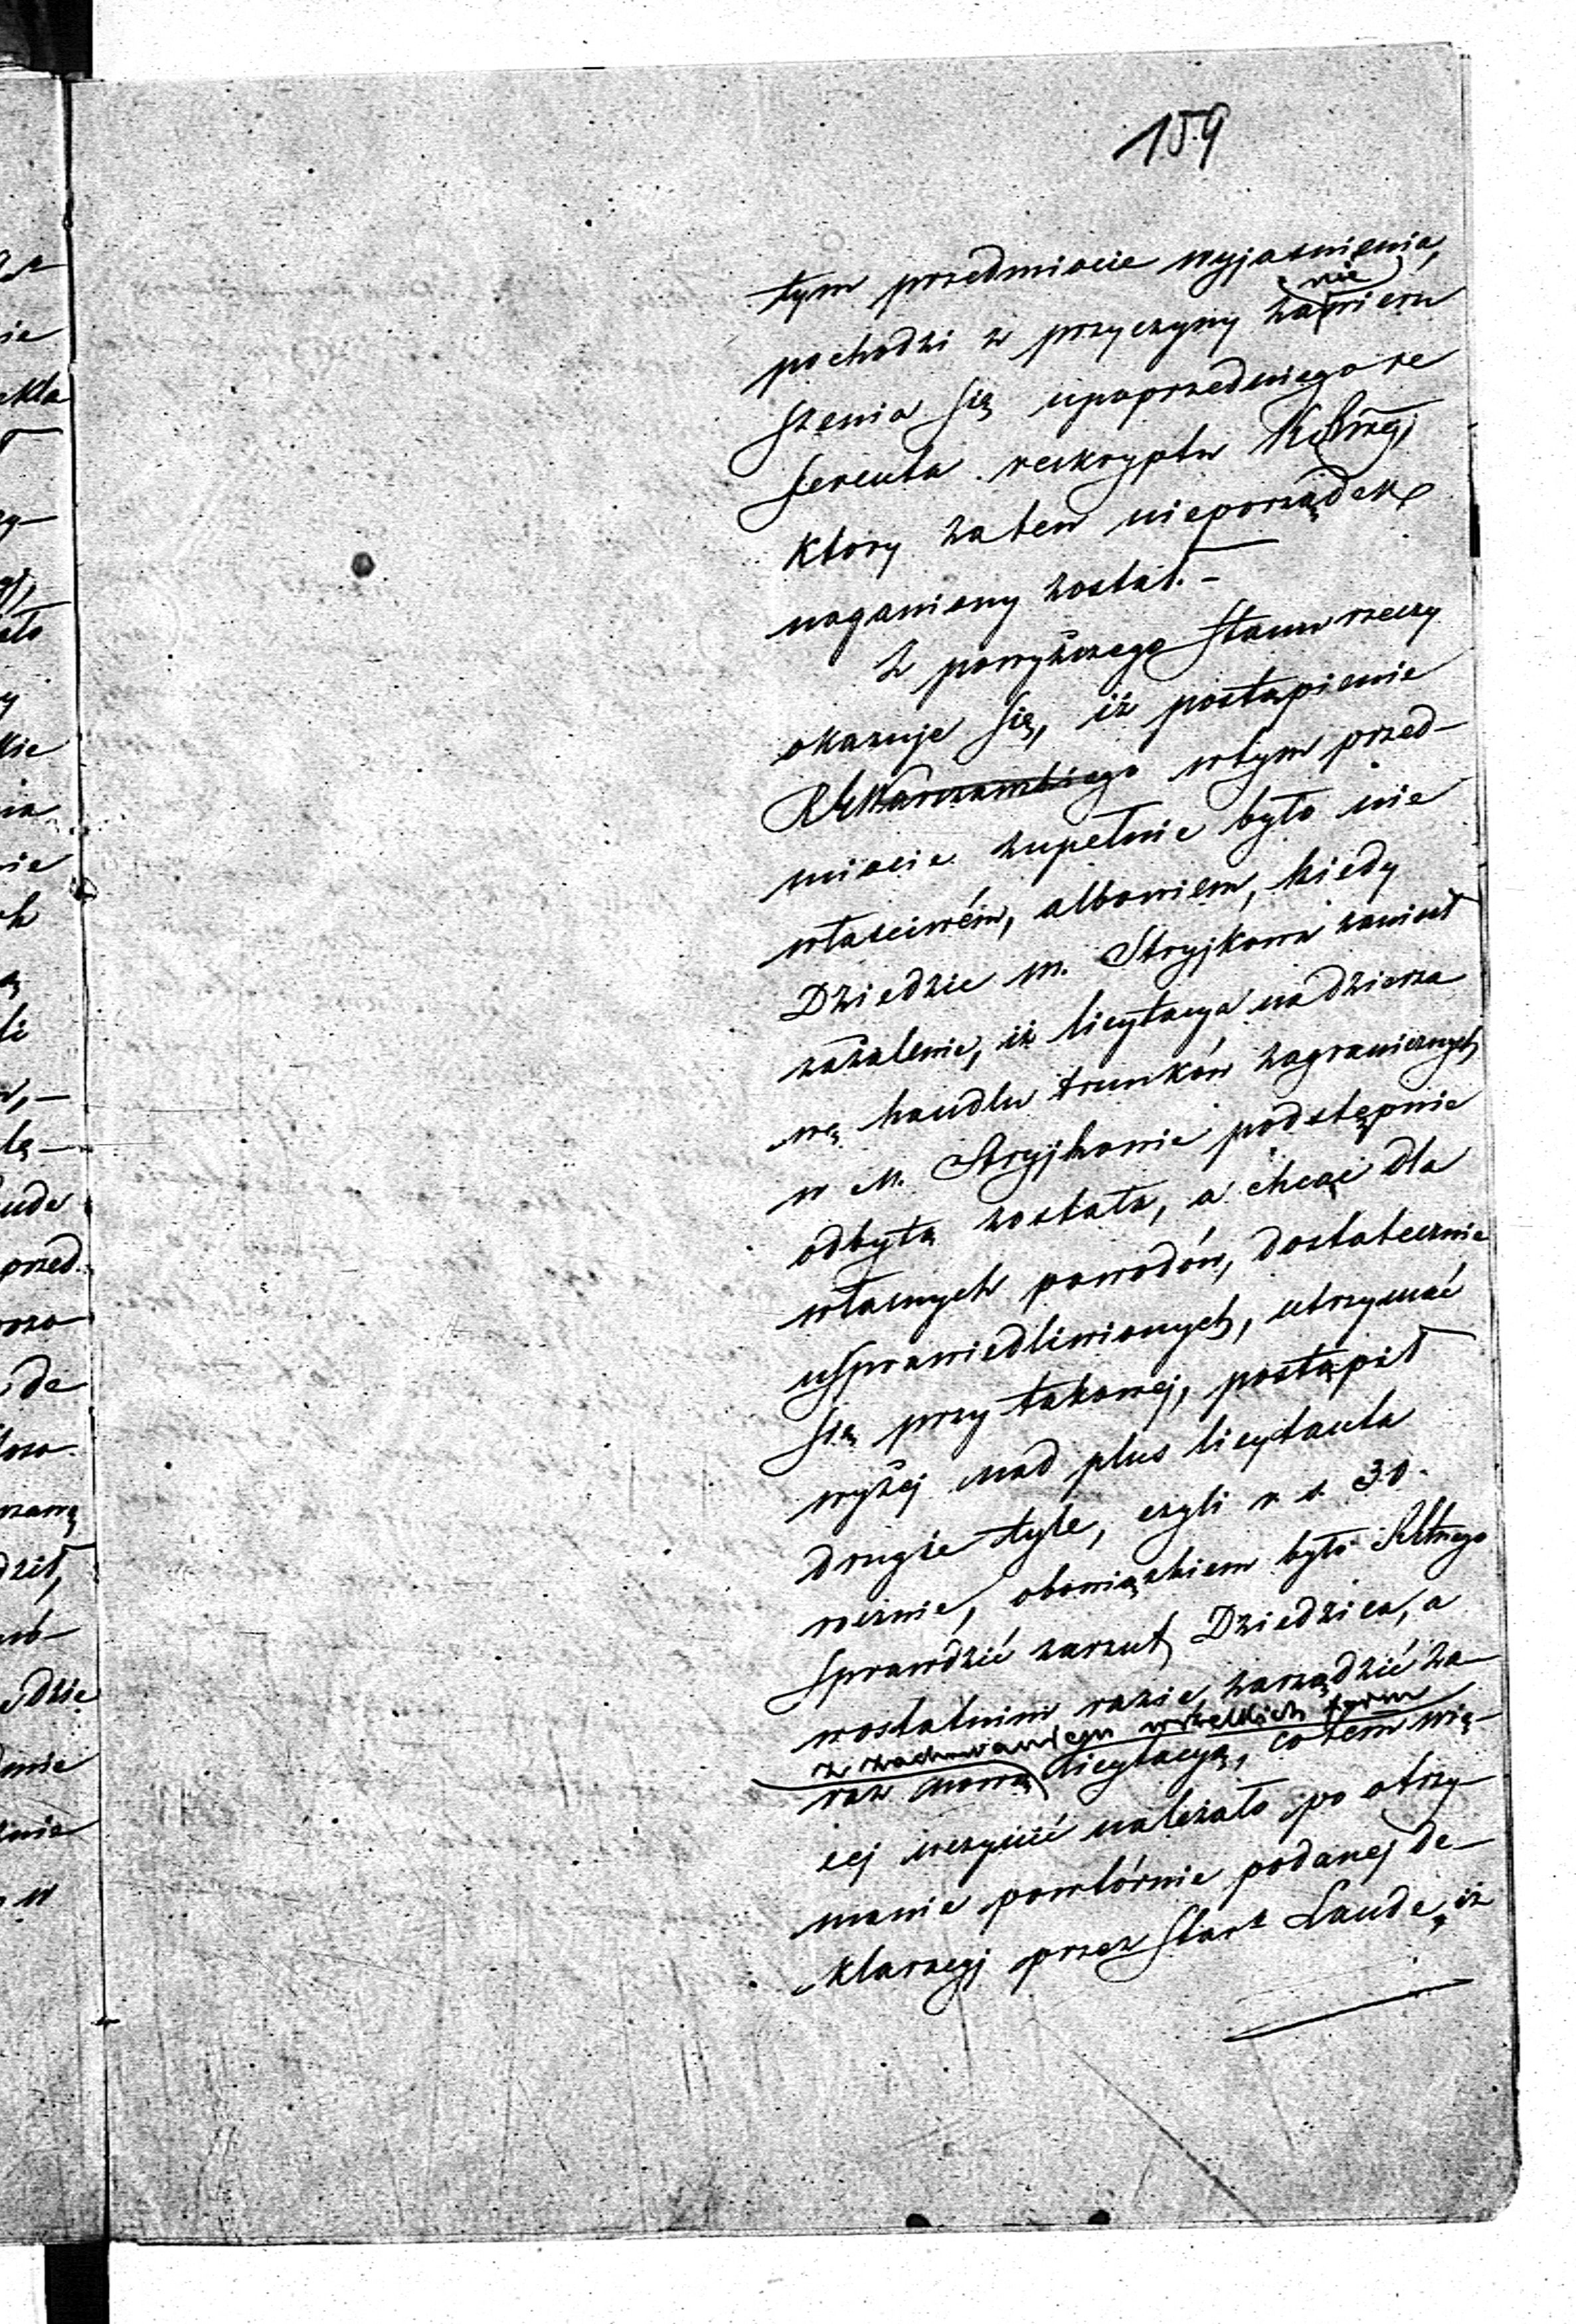 159
tym przedmiocie wyjasnienia,
nie
pochodzi z przyczyny zawieru
szenia się upoprzedniego re
ferenta reskryptu
który zaten nieporządek
naganiony został. –
Z powyższego stanu rzeczy
okazuje się, iż postąpienie
wtym przed–
miocie zupełnie było nie
właściwém, albowiem, kiedy
Dziedzic m. Strykowa zaniósł
zażalenie, iż licytacya na dzierża
wę handlu trunków zagranicznych
w m. Strykowie podstępnie
odbytą została, a chcąc dla
własnych powodów, dostatecznie
usprawiedliwionych, utrzymać
się przy takowej, postąpił
wyżej nad plus licytanta
drugie tyle, czyli r. s. 30.
rocznie, obowiązkiem było
sprawdzić zarzut Dziedzica, a
wostatnim razie, zarządzić za–
z zachowaniem wszelkich form
raz nową licytacyą, co tem wię–
cej uczynić należało po otrzy–
manie powtórnie podanej de–
klaracyj przez Star. Laude, iż
kla
nie
przed
de
dził,
dzie
w